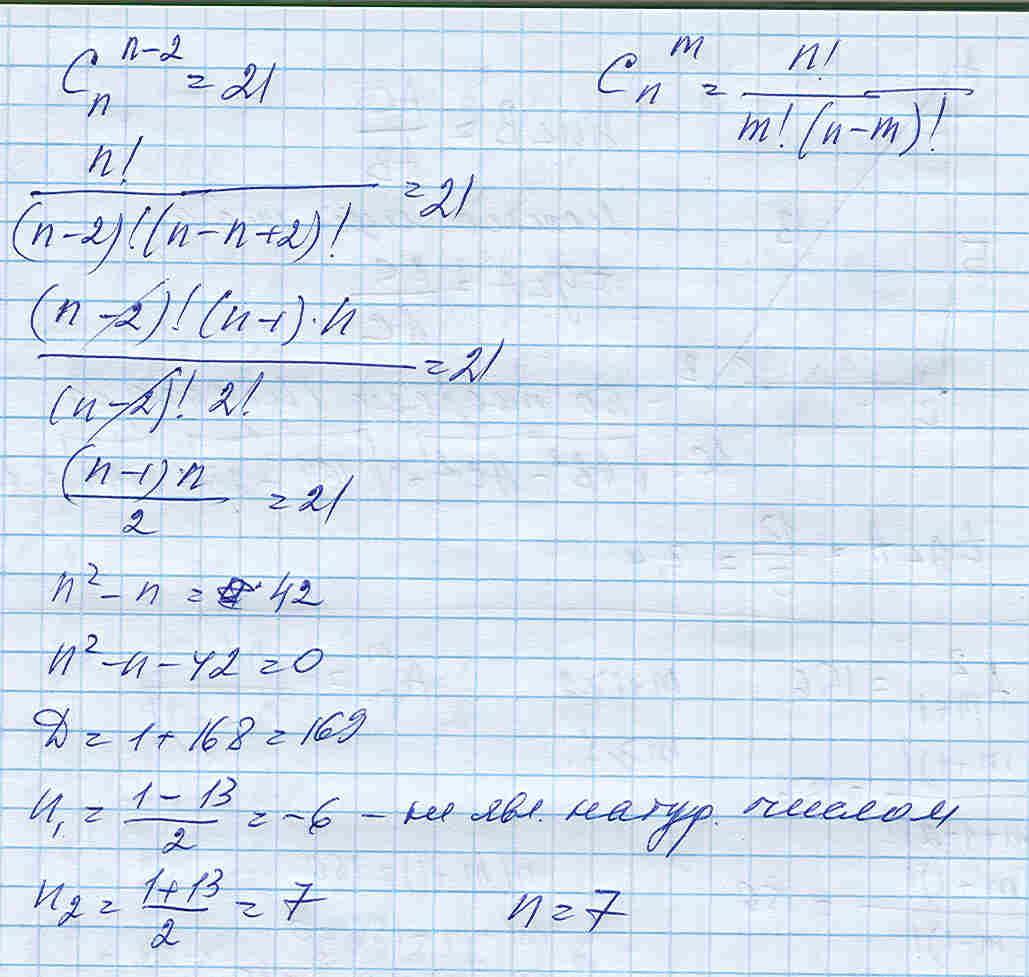 C_n^{n-2} = 21
C_n^m = n! / (m! (n-m)!)
n! / ((n-2)! (n-n+2)!) = 21
((n-2)! (n-1)·n) / ((n-2)! 2!) = 21
((n-1)·n) / 2 = 21
n² - n = 42
n² - n - 42 = 0
D = 1 + 168 = 169
n₁ = (1 - 13) / 2 = -6 - не явл. натур. числом
n₂ = (1 + 13) / 2 = 7
n = 7